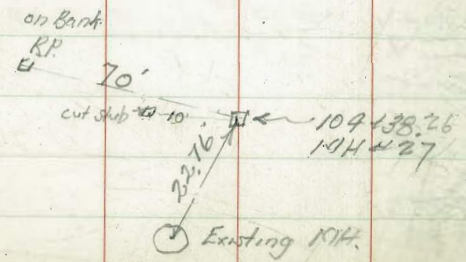 on Bank
R.P.
70'
cut stub 10'
104+38.26
MH #27
22.76'
Existing MH.